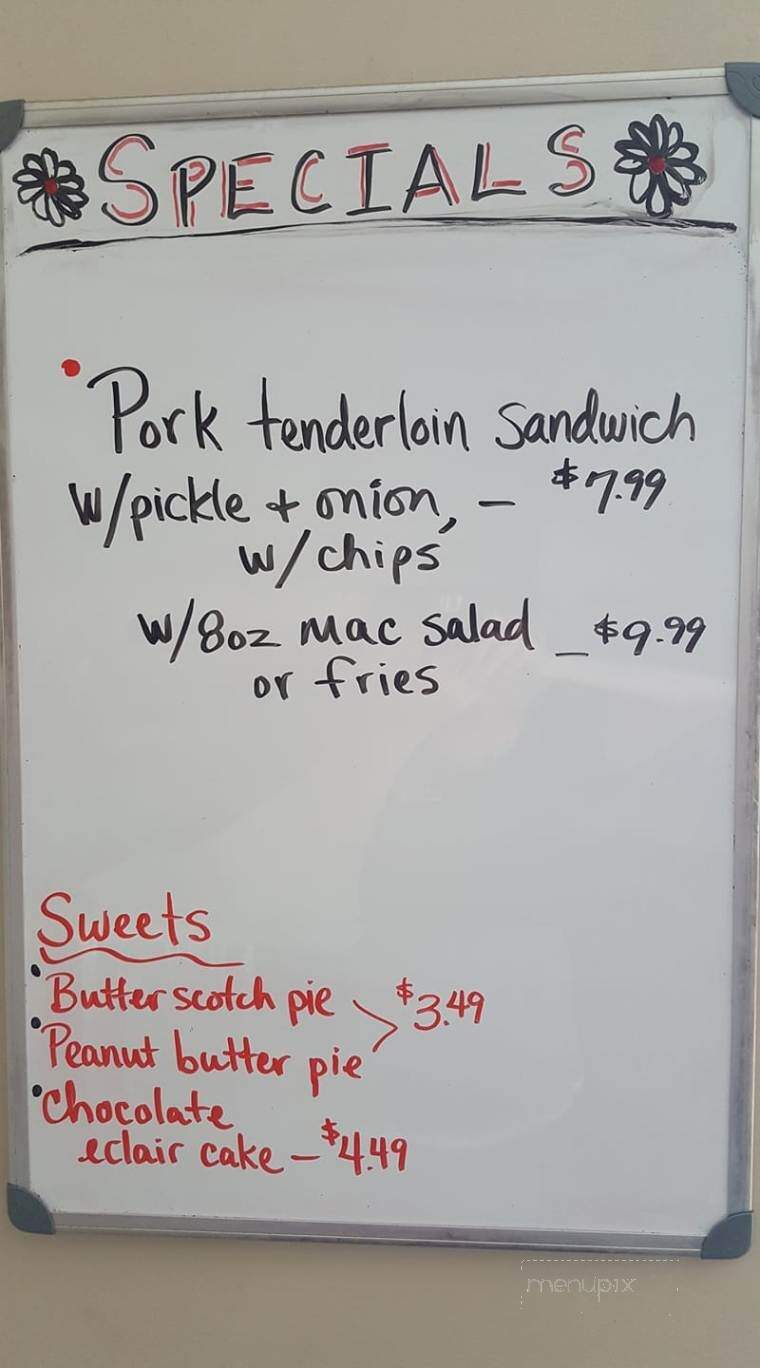 SPECIALS
• Pork tenderloin sandwich
w/pickle + onion, - $7.99
w/chips
w/8oz mac salad _ $9.99
or fries
Sweets
• Butterscotch pie > $3.49
• Peanut butter pie
• Chocolate
eclair cake - $4.49
menupix